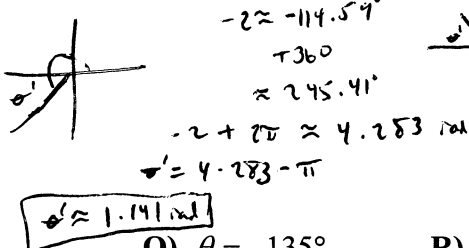 -2 ≈ -114.59°
+360
≈ 245.41°
θ'
-2 + 2π ≈ 4.283 rad
θ' = 4.283 - π
θ' ≈ 1.141 rad
Q) θ = -135° R)